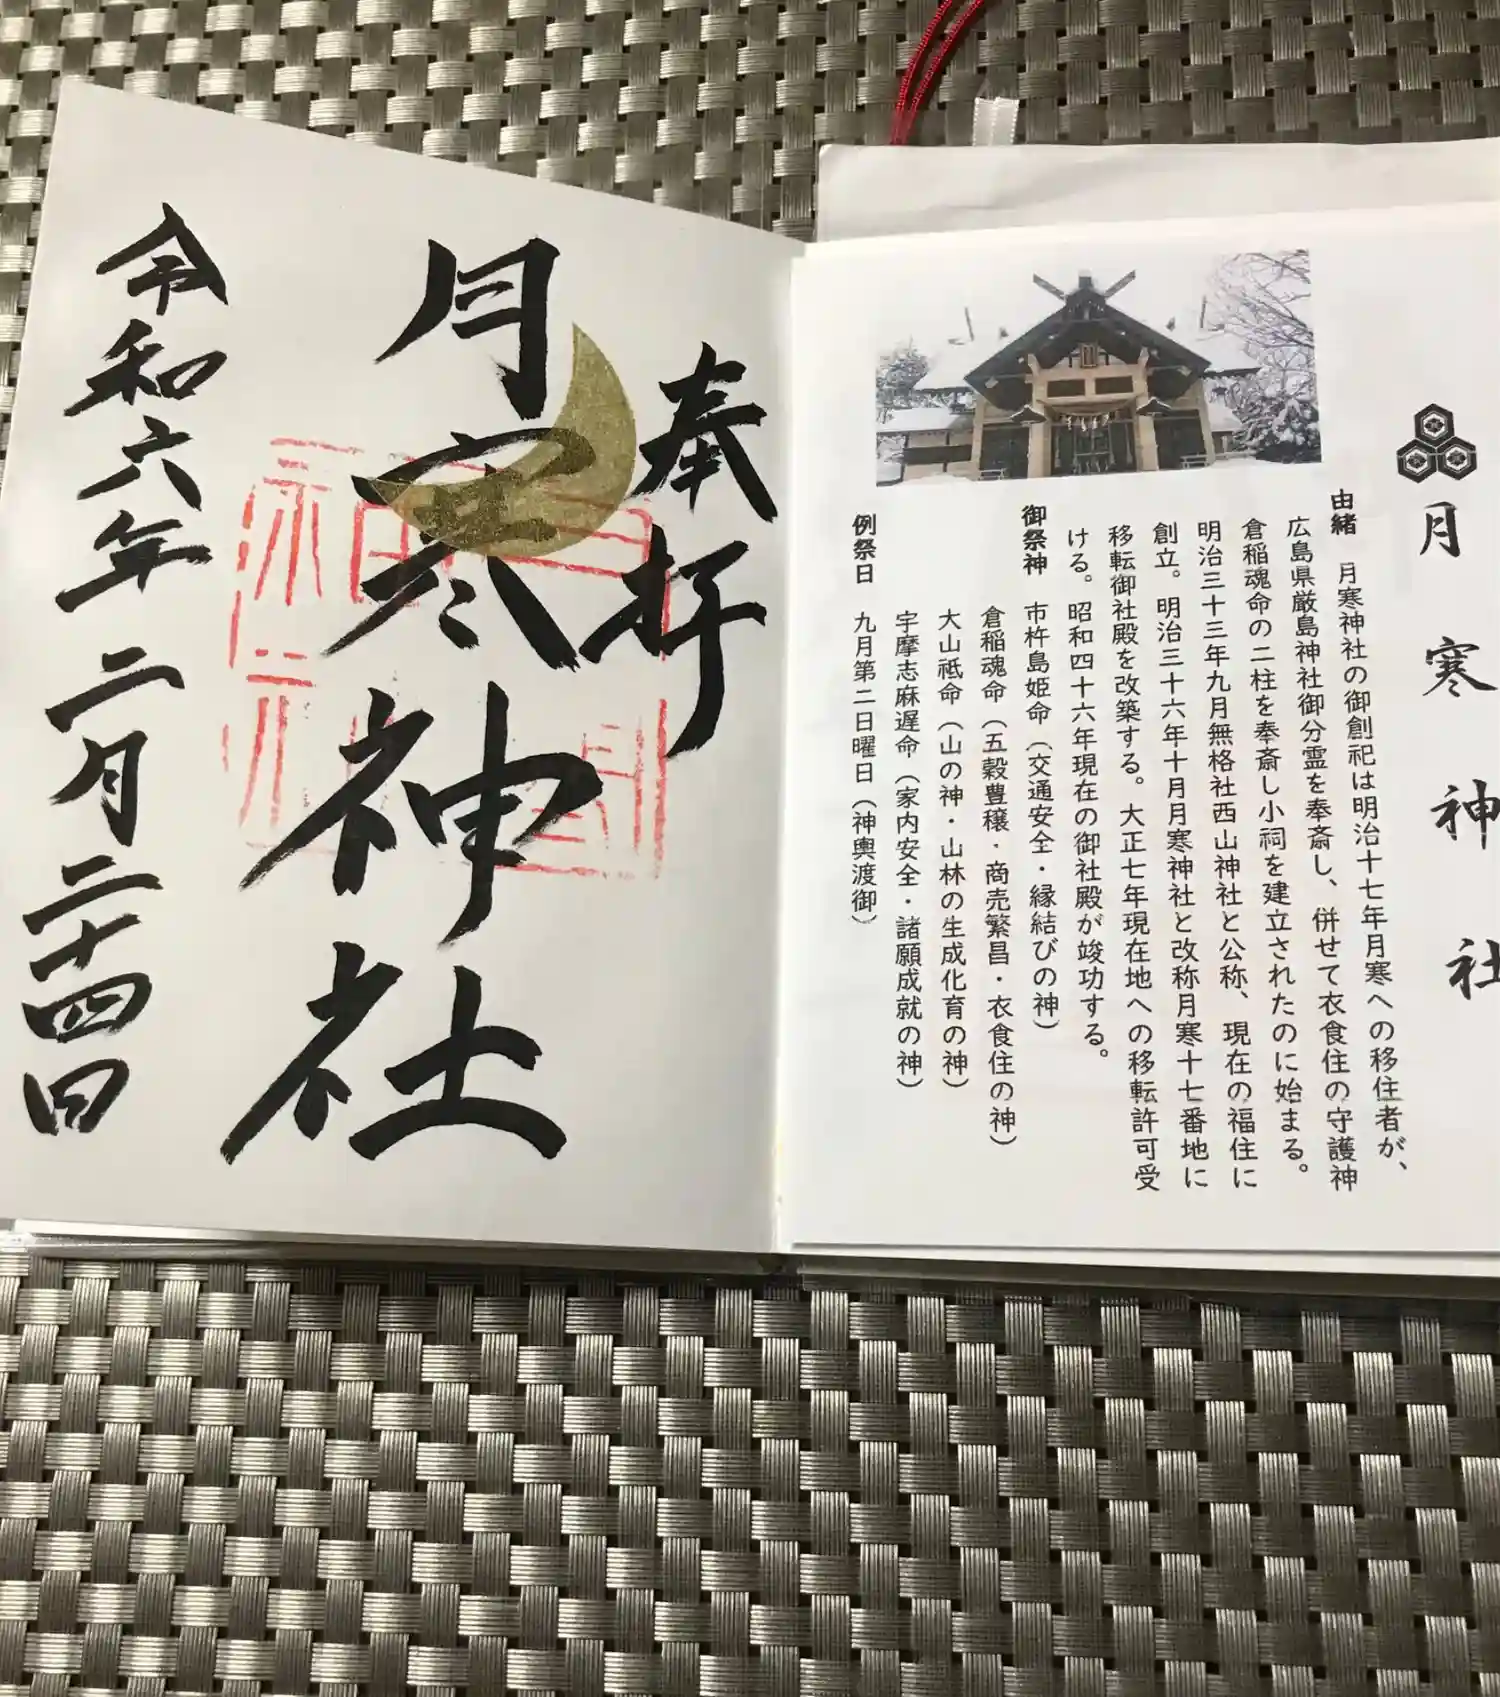 月寒神社
由緒 月寒神社の御創祀は明治十七年月寒への移住者が、
広島県厳島神社御分霊を奉斎し、併せて衣食住の守護神
倉稲魂命の二柱を奉斎し小祠を建立されたのに始まる。
明治三十三年九月無格社西山神社と公称、現在の福住に
創立。明治三十六年十月月寒神社と改称月寒十七番地に
移転御社殿を改築する。大正七年現在地への移転許可受
ける。昭和四十六年現在の御社殿が竣功する。
御祭神 市杵島姫命（交通安全・縁結びの神）
倉稲魂命（五穀豊穣・商売繁昌・衣食住の神）
大山祗命（山の神・山林の生成化育の神）
宇摩志麻遅命（家内安全・諸願成就の神）
例祭日 九月第二日曜日（神輿渡御）
奉拝
月寒神社
令和六年二月二十四日